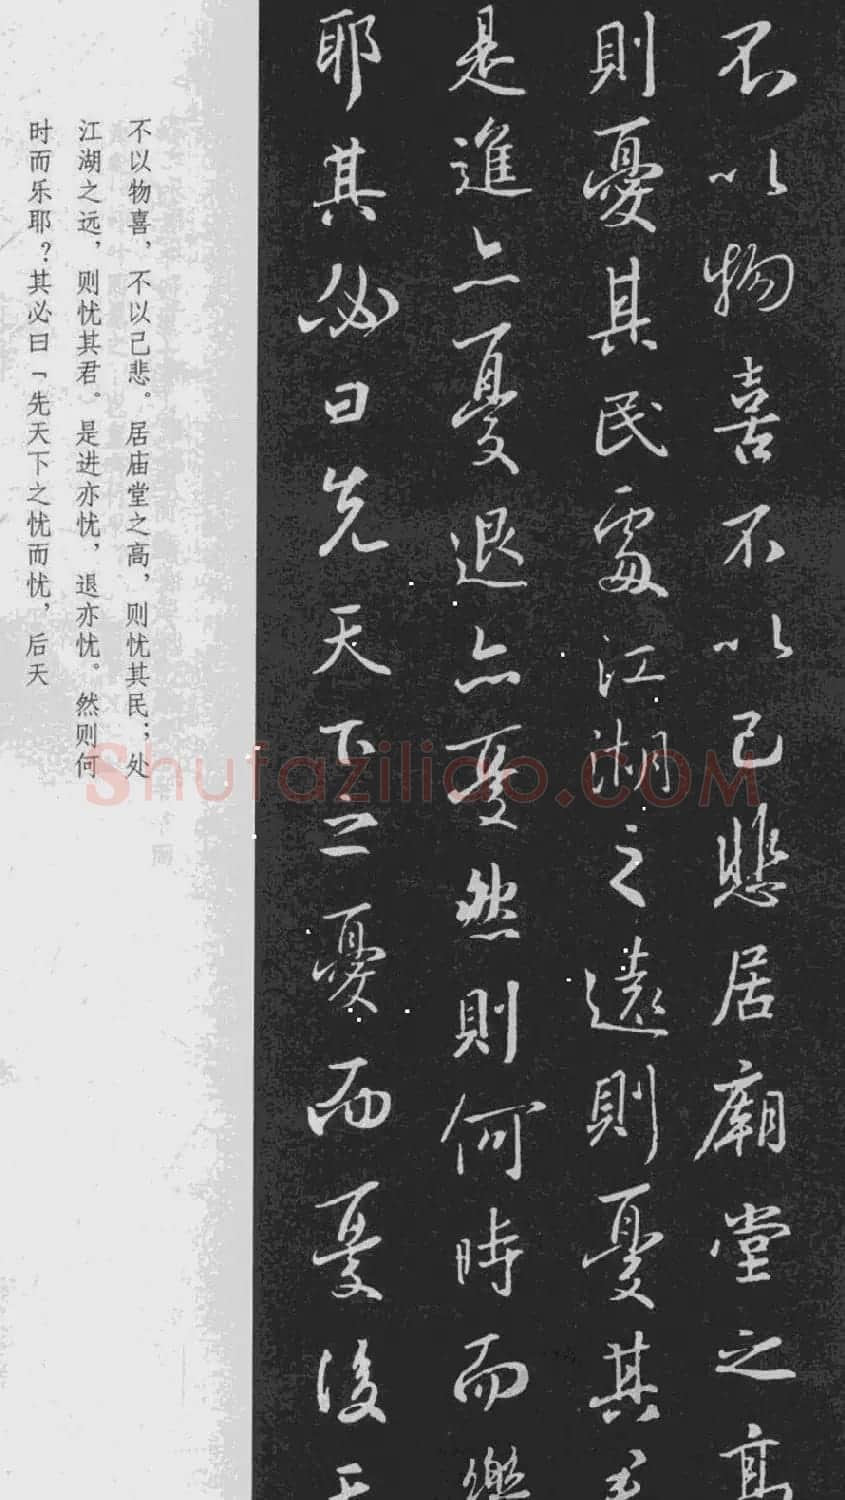 不以物喜不以己悲居廟堂之高
則憂其民處江湖之遠則憂其
是進亦憂退亦憂然則何時而樂
耶其必曰先天下之憂而憂後天
不以物喜，不以己悲。居庙堂之高，则忧其民；处
江湖之远，则忧其君。是进亦忧，退亦忧。然则何
时而乐耶？其必曰「先天下之忧而忧，后天
Shufaziliao.COM